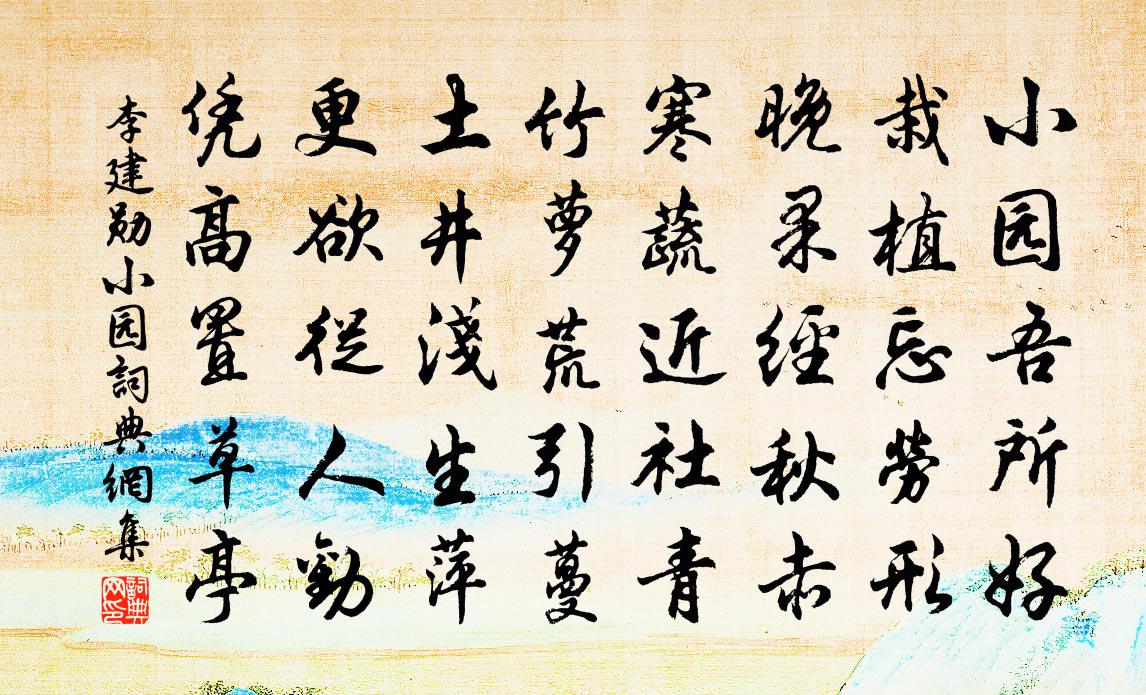 小园吾所好
栽植忘勞形
晚果經秋赤
寒蔬近社青
竹萝荒引蔓
土井淺生萍
更欲從人勸
凭高置草亭
李建勋小园詞典網集
詞典网印